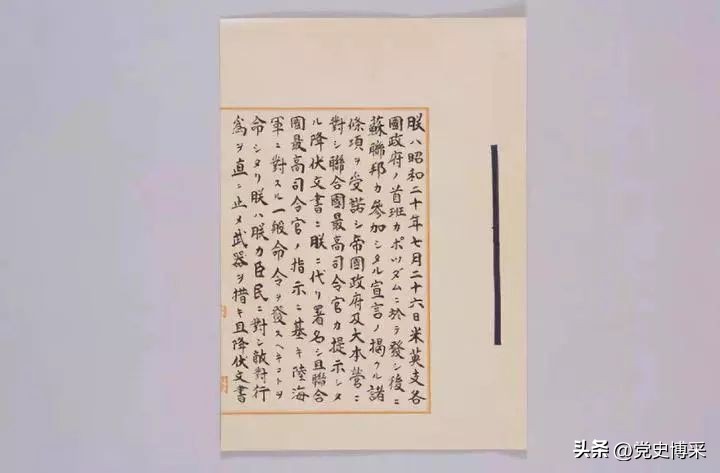 朕ハ昭和二十年七月二十六日米英支各
國政府ノ首班カポツダムニ於テ發シ後ニ
蘇聯邦カ參加シタル宣言ノ掲クル諸
條項ヲ受諾シ帝國政府及大本營ニ
對シ聯合國最高司令官カ提示シタ
ル降伏文書ニ朕ニ代リ署名シ且聯合
國最高司令官ノ指示ニ基キ陸海
軍ニ對スル一般命令ヲ發スヘキコトヲ
命シタリ朕ハ朕カ臣民ニ對シ敵對行
為ヲ直ニ止メ武器ヲ措キ且降伏文書
头条 @党史博采